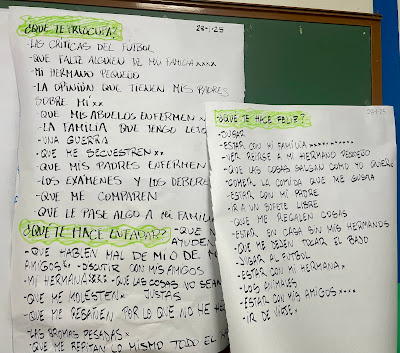 ¿QUÉ TE PREOCUPA? 28-1-25
-LAS CRÍTICAS DEL FUTBOL
-QUE FALTE ALGUIEN DE MI FAMILIA xxxx
-MI HERMANO PEQUEÑO
-LA OPINIÓN QUE TIENEN MIS PADRES
SOBRE MÍ xx
-QUE MIS ABUELOS ENFERMEN x
-LA FAMILIA QUE TENGO
-UNA GUERRA
-QUE ME SECUESTREN xx
-QUE MIS PADRES ENFERMEN
-LOS EXÁMENES Y LOS DEBERE
-QUE ME COMPAREN
-QUE LE PASE ALGO A MI FAMILI
¿QUÉ TE HACE ENFADAR? -QUE
AYUDEN
-QUE HABLEN MAL DE MÍ O DE M
AMIGOS -DISCUTIR CON MIS AMIGOS
-MI HERMANA xxx -QUE LAS COSAS NO SEAN
-QUE ME MOLESTEN x JUSTAS
-QUE ME REGAÑEN POR LO QUE NO HE
-LAS BROMAS PESADAS x
-QUE ME REPITAN LO MISMO TODO EL
¿QUÉ TE HACE FELIZ?
-JUGAR
-ESTAR CON MI FAMILIA xxxxxxxxxx
-VER REIRSE A MI HERMANO PEQUEÑO
-QUE LAS COSAS SALGAN COMO YO QUIERO
-COMER LA COMIDA QUE ME GUSTA
-ESTAR CON MI PADRE
-IR A UN BUFETE LIBRE
-QUE ME REGALEN COSAS
-ESTAR EN CASA SIN MIS HERMANOS
-QUE ME DEJEN TOCAR EL BAJO
-JUGAR AL FUTBOL
-ESTAR CON MI HERMANA x
-LOS ANIMALES
-ESTAR CON MIS AMIGOS xxxx
-IR DE VIAJE x